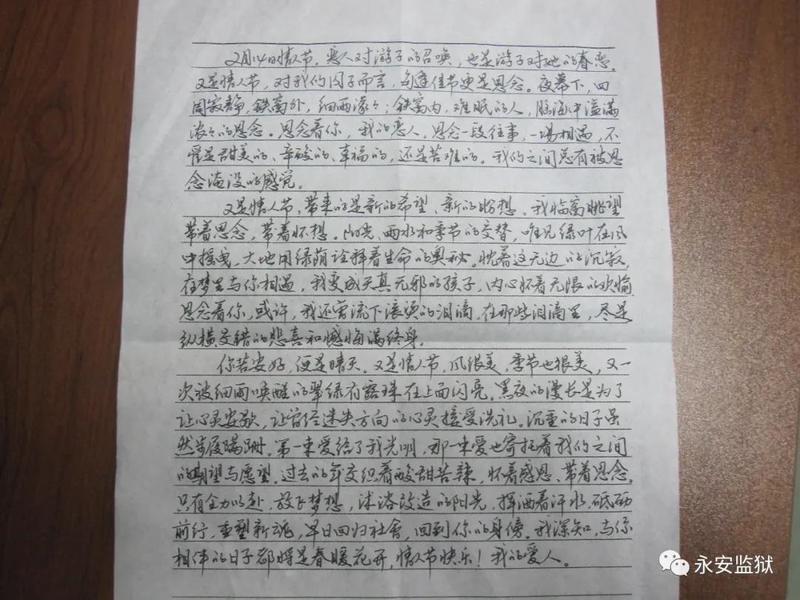 2月14日情人节,恋人对游子的召唤,也是游子对她的眷恋。
又是情人节,对我们囚子而言,每逢佳节更是思念。夜幕下,四
周寂静,铁窗外,细雨濛々;铁窗内,难眠的人,脑海中溢满
浓々的思念。思念着你,我的恋人,思念一段往事,一场相遇,不
管是甜美的、辛酸的、幸福的,还是苦难的。我们之间总有被思
念淹没的感觉。
又是情人节,带来的是新的希望、新的盼想。我临窗眺望
带着思念,带着怀想。阳光、雨水和季节的交替,唯见绿叶在风
中摇曳,大地用绿荫诠释着生命的奥秘。忱着这无边的沉寂
在梦里与你相遇,我变成天真无邪的孩子,内心怀着无限的欢愉
思念着你,或许,我还曾流下滚烫的泪滴,在那些泪滴里,尽是
纵横交错的悲喜和憾悔满终身。
你若安好,便是晴天。又是情人节,风很美,季节也很美,又一
次被细雨唤醒的翠绿有露珠在上面闪亮,黑夜的漫长是为了
让心灵安歇,让曾经迷失方向的心灵接受洗礼。沉重的日子虽
然步履蹒跚,第一束爱给了我光明,那一束爱也寄托着我们之间
的期望与愿望。过去的年交织着酸甜苦辣,怀着感恩、带着思念,
只有全力以赴,放飞梦想,沐浴改造的阳光,挥洒着汗水,砥砺
前行,重塑新魂,早日回归社会,回到你的身傍。我深知,与你
相伴的日子都将是春暖花开,情人节快乐!我的爱人。
永安监狱